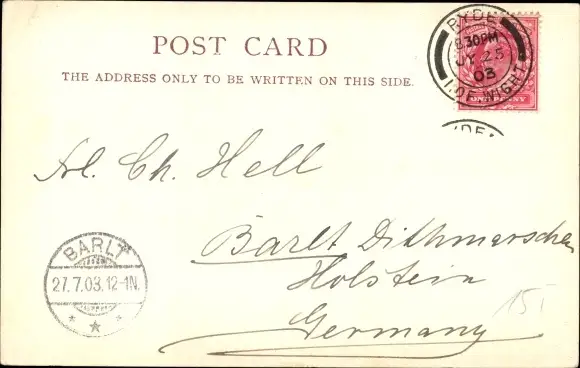 POST CARD
THE ADDRESS ONLY TO BE WRITTEN ON THIS SIDE.
RYDE
8.30PM
JY 25
03
I. OF WIGHT
ONE PENNY
RYDE
Frl. Ch. Hell
Barlt Dithmarschen
Holstein
Germany
BARLT
27.7.03.12-1N.
15